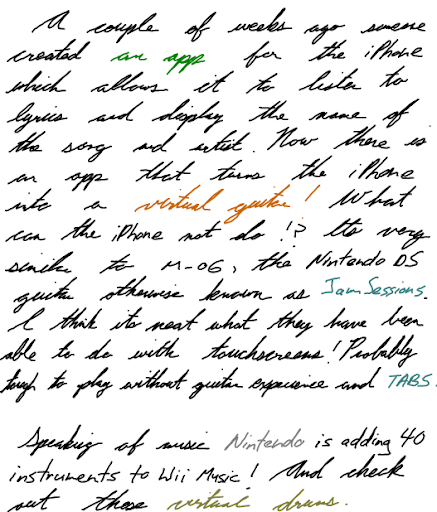 A couple of weeks ago someone
created an app for the iPhone
which allows it to listen to
lyrics and display the name of
the song and artist. Now there is
an app that turns the iPhone
into a virtual guitar! What
can the iPhone not do!? Its very
similar to M-06, the Nintendo DS
guitar otherwise known as Jam Sessions.
I think its neat what they have been
able to do with touchscreens! Probably
tough to play without guitar experience and TABS.
Speaking of music Nintendo is adding 40
instruments to Wii Music! And check
out these virtual drums.